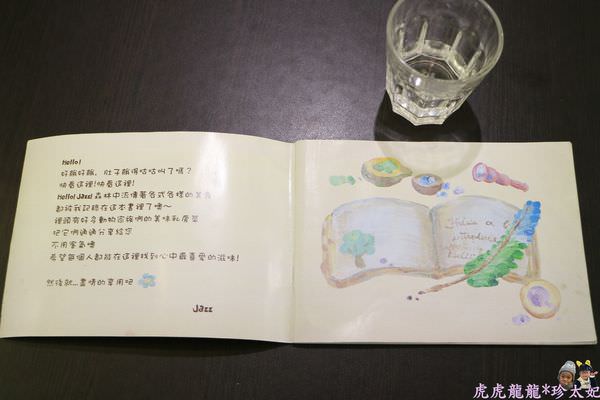 Hello!
好餓好餓，肚子餓得咕咕叫了嗎？
快看這裡！快看這裡！
Hello! Jazz! 森林中流傳著各式各樣的美食
都被我記錄在這本書裡了噢～
裡頭有好多動物家族們的美味私房菜
把它們通通分享給您
不用客氣噢
希望每個人都能在這裡找到心中最喜愛的滋味！
然後就...盡情的享用吧
Jazz
虎虎龍龍*珍太妃